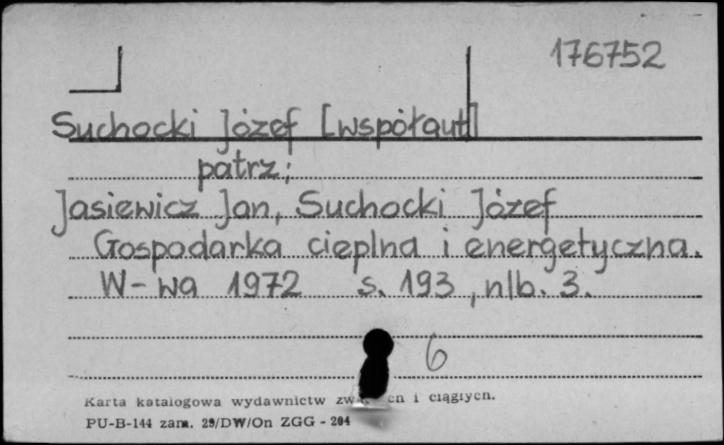 176752
Suchocki Józef [współaut]
patrz:
Jasiewicz Jan, Suchocki Józef
Gospodarka cieplna i energetyczna.
W-wa 1972 s. 193, nlb. 3.
6
Karta katalogowa wydawnictw i ciągłych.
PU-B-144 zam. 29/DW/On ZGG - 204